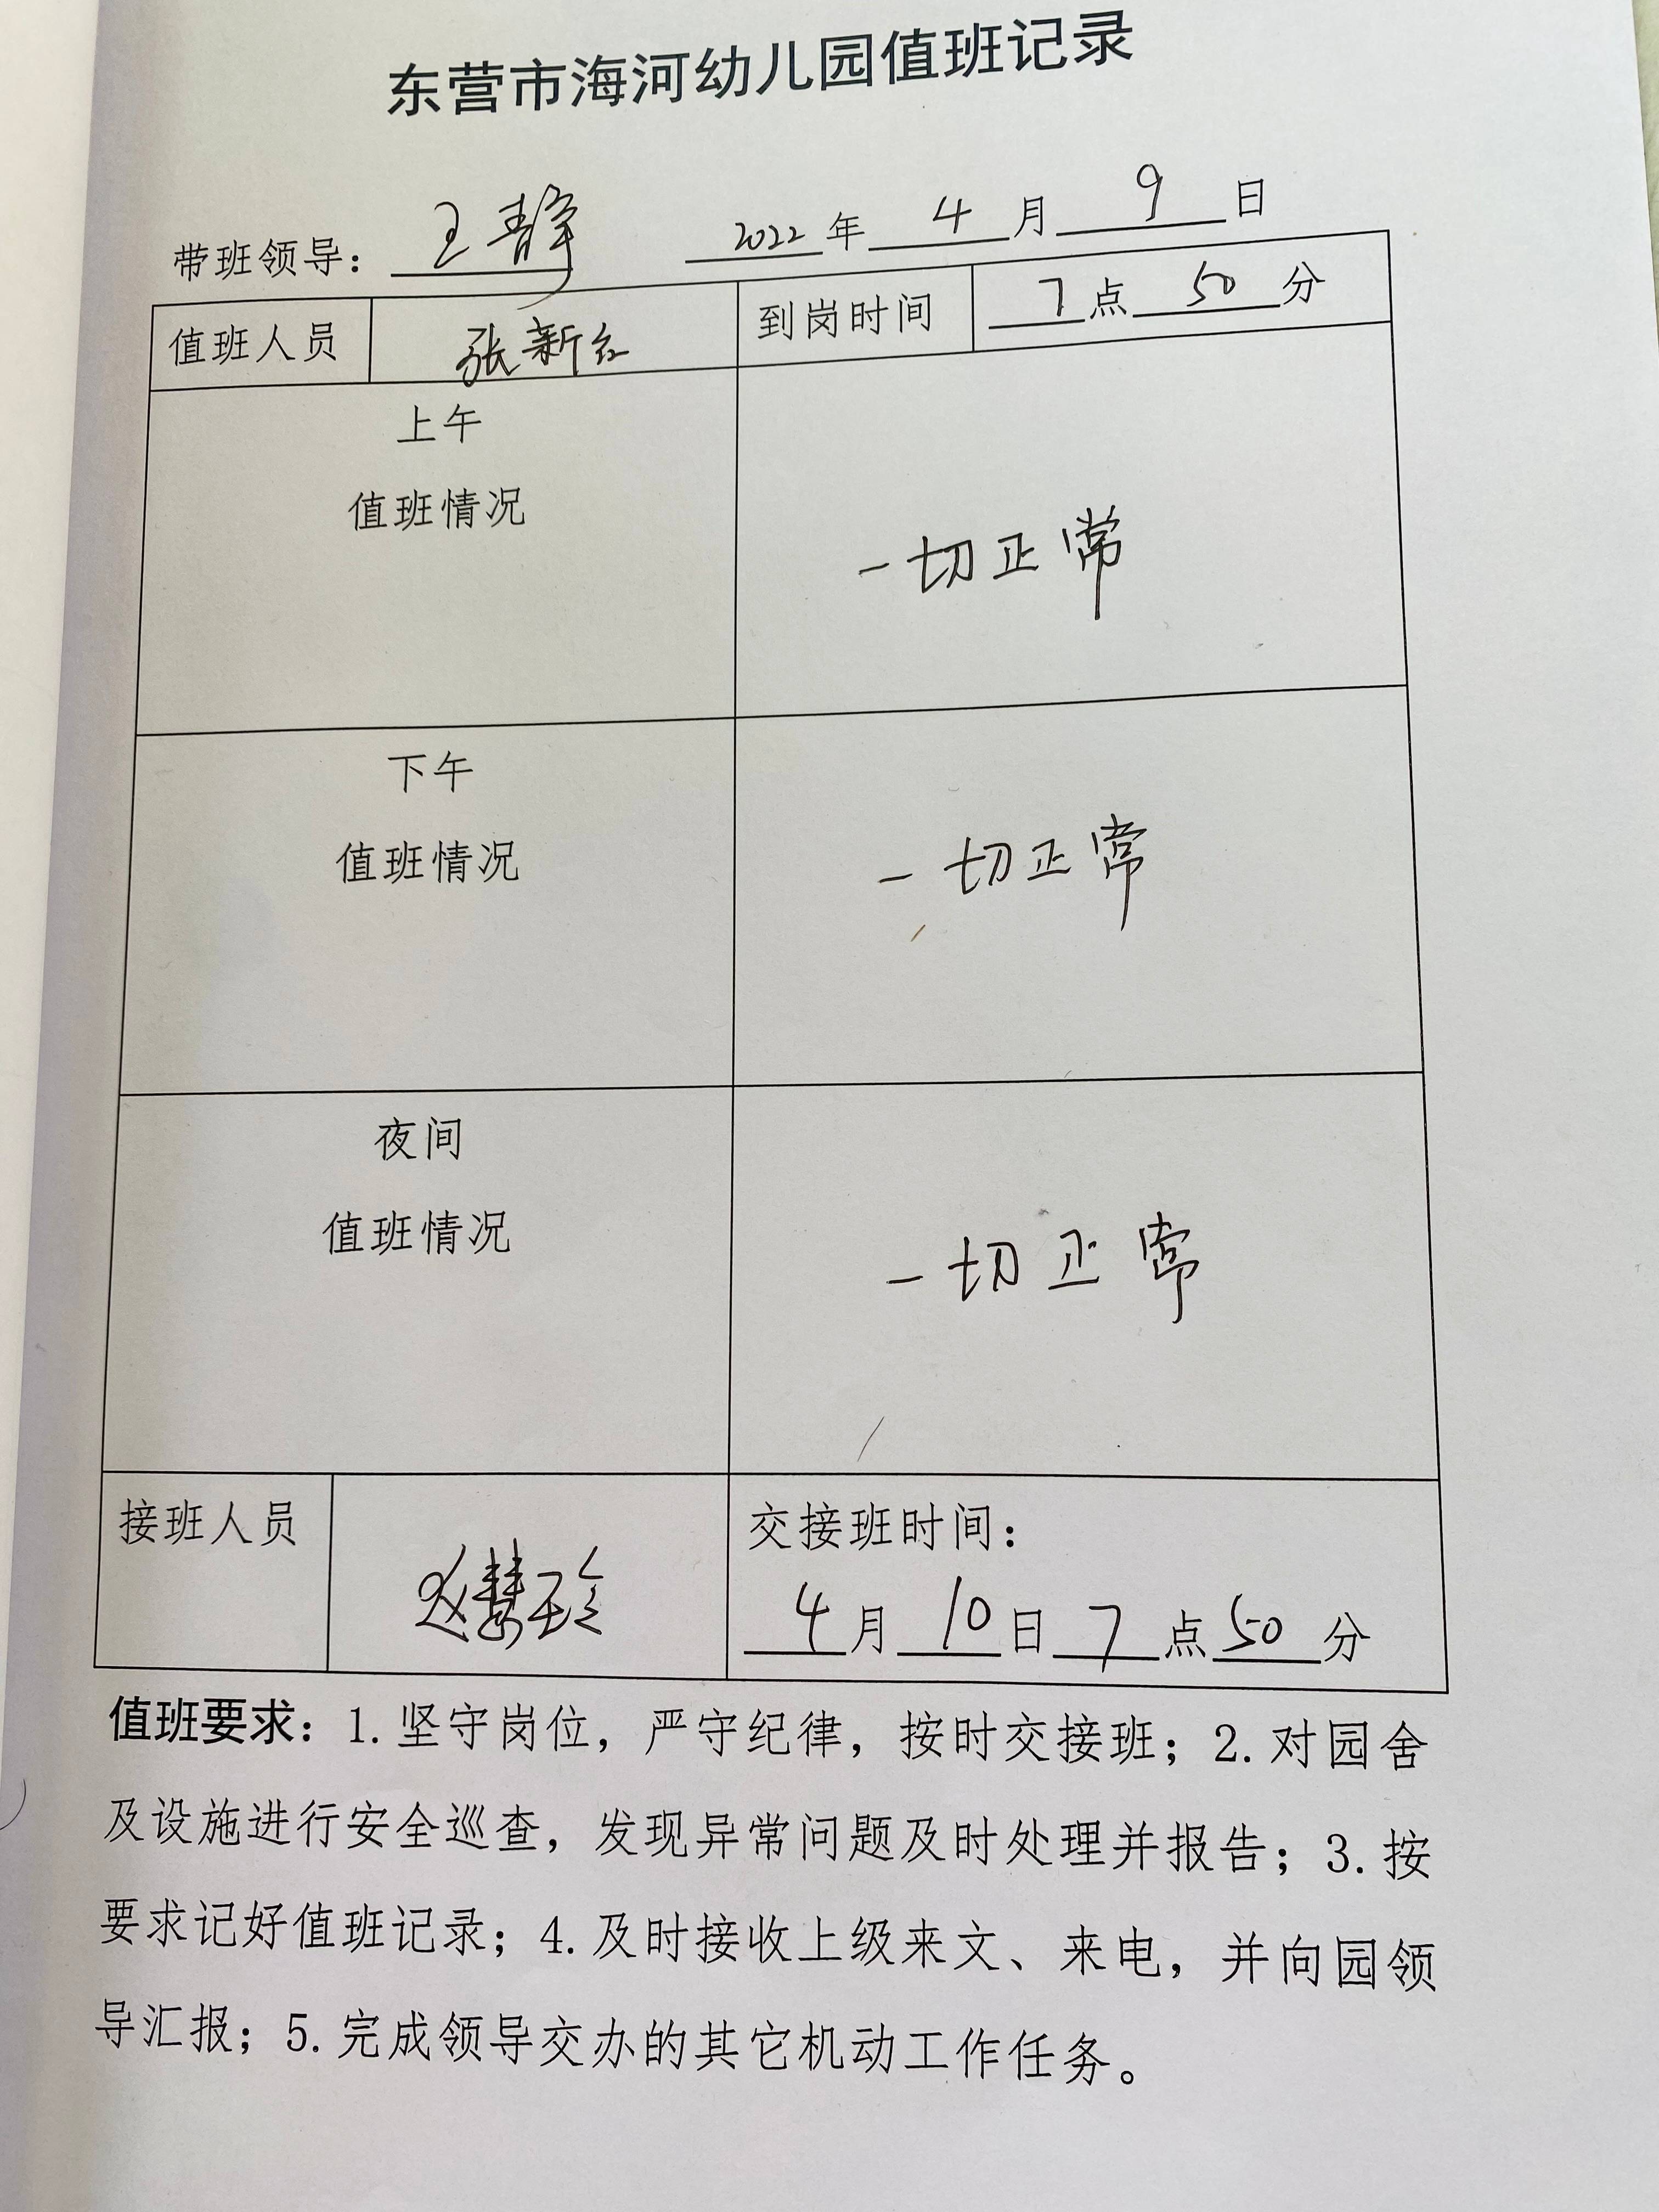 东营市海河幼儿园值班记录
带班领导：王静 2022年4月9日
值班人员 张新红 到岗时间 7点50分
上午
值班情况
一切正常
下午
值班情况
一切正常
夜间
值班情况
一切正常
接班人员 赵慧玲 交接班时间：
4月10日7点50分
值班要求：1.坚守岗位，严守纪律，按时交接班；2.对园舍
及设施进行安全巡查，发现异常问题及时处理并报告；3.按
要求记好值班记录；4.及时接收上级来文、来电，并向园领
导汇报；5.完成领导交办的其它机动工作任务。